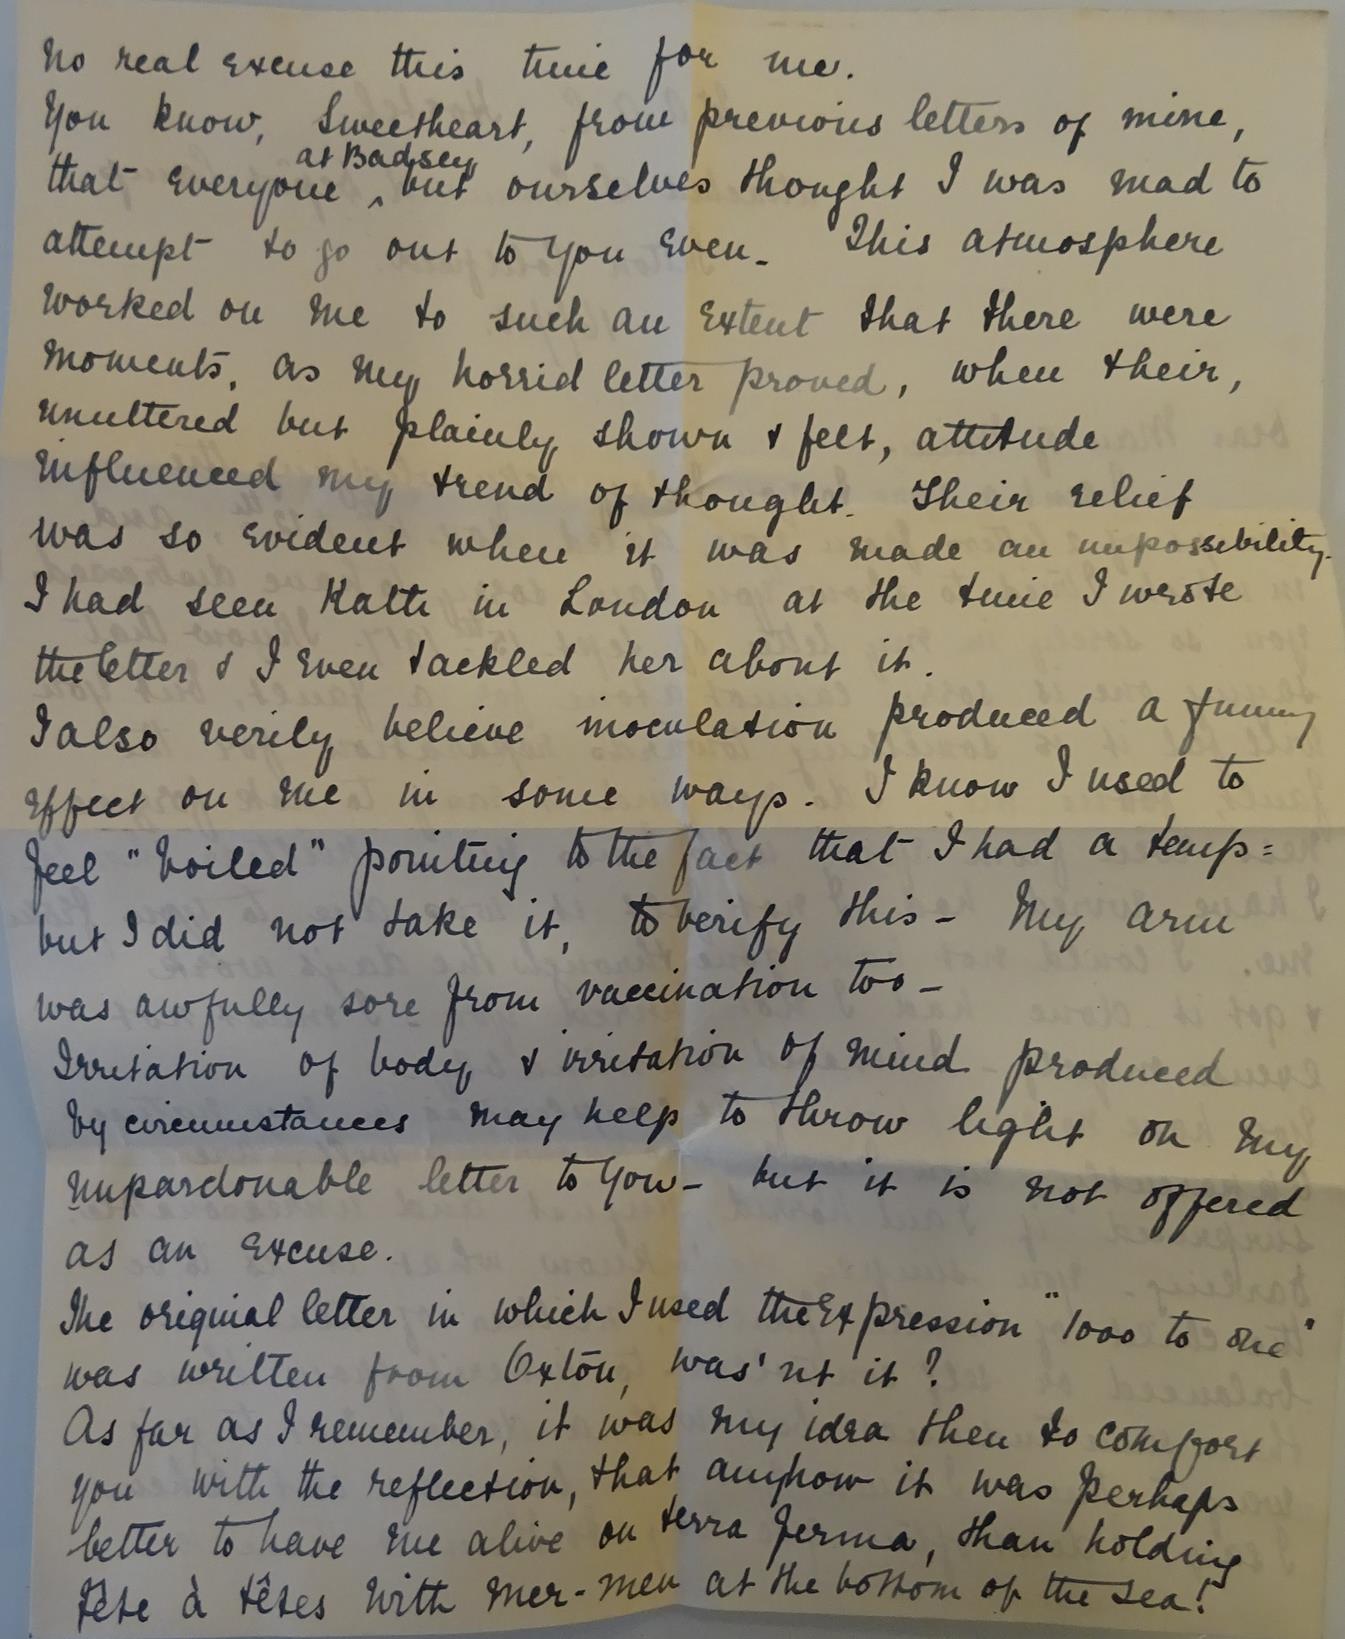 No real excuse this time for me.
You know, Sweetheart, from previous letters of mine,
that everyone at Badsey but ourselves thought I was mad to
attempt to go out to you even. This atmosphere
worked on me to such an extent that there were
moments, as my horrid letter proved, when their,
unuttered but plainly shown & felt, attitude
influenced my trend of thought. Their relief
was so evident when it was made an impossibility.
I had seen Kath in London at the time I wrote
the letter & I even tackled her about it.
I also verily believe inoculation produced a funny
effect on me in some ways. I know I used to
feel "boiled" pointing to the fact that I had a temp=
but I did not take it, to verify this - My arm
was awfully sore from vaccination too -
Irritation of body & irritation of mind produced
by circumstances may help to throw light on my
unpardonable letter to you - but it is not offered
as an excuse.
The original letter in which I used the expression "1000 to one"
was written from Oxton, was'nt it?
As far as I remember, it was my idea then to comfort
you with the reflection, that anyhow it was perhaps
better to have me alive on terra ferma, than holding
tête à têtes with mer-men at the bottom of the sea!